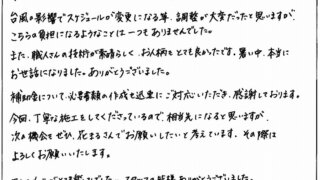 台風の影響でスケジュールが変更になる等、調整が大変だったと思いますが、
こちらの負担になるようなことは一つもありませんでした。
また、職人さんの技術が素晴らしく、お人柄もとても良かったです。暑い中、本当に
お世話になりました。ありがとうございました。
補助金について、必要書類の作成も迅速にご対応いただき、感謝しております。
今回、丁寧な施工をしてくださっているので、相当先になると思いますが、
次の機会もぜひ、花まるさんでお願いしたいと考えています。その際は
よろしくお願いいたします。
ありがとうございました。